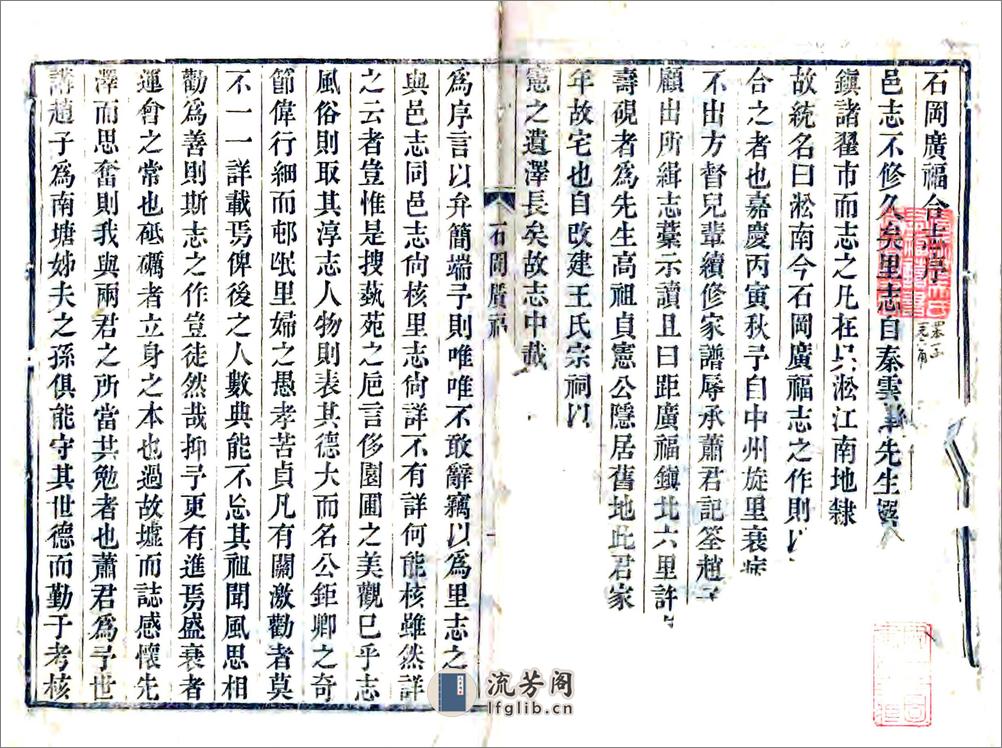 石岡廣福合志序
邑志不修久矣里志自秦雲 先生撰
鎮諸翟市而志之凡在吳淞江南地隸
故統名曰淞南今石岡廣福志之作則以
合之者也嘉慶丙寅秋予自中州旋里衰病
不出方督兒輩續修家譜辱承蕭君記筌趙子
顧出所緝志藁示讀且曰距廣福鎮北六里許
壽硯者為先生高祖貞憲公隱居舊地此君家
年故宅也自改建王氏宗祠以
憲之遺澤長矣故志中載
石岡廣福
為序言以弁簡端予則唯唯不敢辭竊以為里志之
與邑志同邑志尚核里志尚詳不有詳何能核雖然詳
之云者豈惟是搜蓺苑之卮言侈園圃之美觀已乎志
風俗則取其淳志人物則表其德大而名公鉅卿之奇
節偉行細而邨氓里婦之愚孝苦貞凡有關激勸者莫
不一一詳載焉俾後之人數典能不忘其祖聞風思相
勸為善則斯志之作豈徒然哉抑予更有進焉盛衰者
運會之常也砥礪者立身之本也過故墟而誌感懷先
澤而思奮則我與兩君之所當共勉者也蕭君為予世
講趙子為南塘姊夫之孫俱能守其世德而勤于考核
流芳阁
lfglib.cn